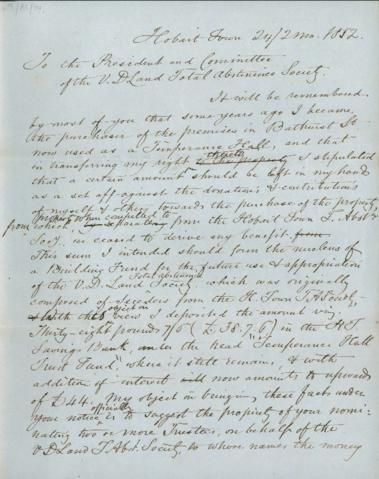 Hobart Town 24/2 mo. 1852
To the President and Committee
of the V. D Land Total Abstinence Society.
It will be remembered
by most of you that some years ago I became
the purchaser of the premises in Bathurst St
now used as a Temperance Hall, and that
in transferring my right I stipulated
that a certain amount should be left in my hands
as a set off against the donations & contributions
of myself & others towards the purchase of the property,
from which, compelled to from the Hobart Town T. Abst.
Socy. we ceased to derive any benefit. from
This sum I intended should form the nucleus of
a Building Fund for the future use & appropriation
of the V. D. Land Total Abstinence Society, which was originally
composed of Seceders from the H. Town T A Society,
with this object in view I deposited the amount viz.
Thirty-eight pounds 7/6 (£38.7.6) in the H T
Savings Bank, under the head "Temperance Hall
Trust Fund", where it still remains, & with
addition of interest now amounts to upwards
of £44. My object in bringing these facts under
your notice officially is to suggest the propriety of your nomi-
nating two or more Trustees, on behalf of the
V D Land T. Abst. Society, to whose names the money